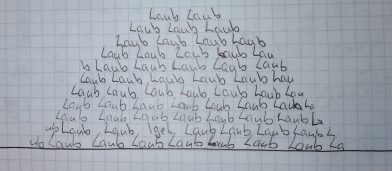 Laub Laub
Laub Laub Laub
Laub Laub Laub Laub
Laub Laub Laub Laub Lau
b Laub Laub Laub Laub Laub
Laub Laub Laub Laub Laub Lau
Laub Laub Laub Laub Laub Laub Lau
Laub Laub Laub Laub Laub Laub La
Laub Laub Laub Laub Laub Laub La
ub Laub, Laub, Igel, Laub Laub Laub Laub L
ub Laub Laub Laub Laub Laub Laub Laub La